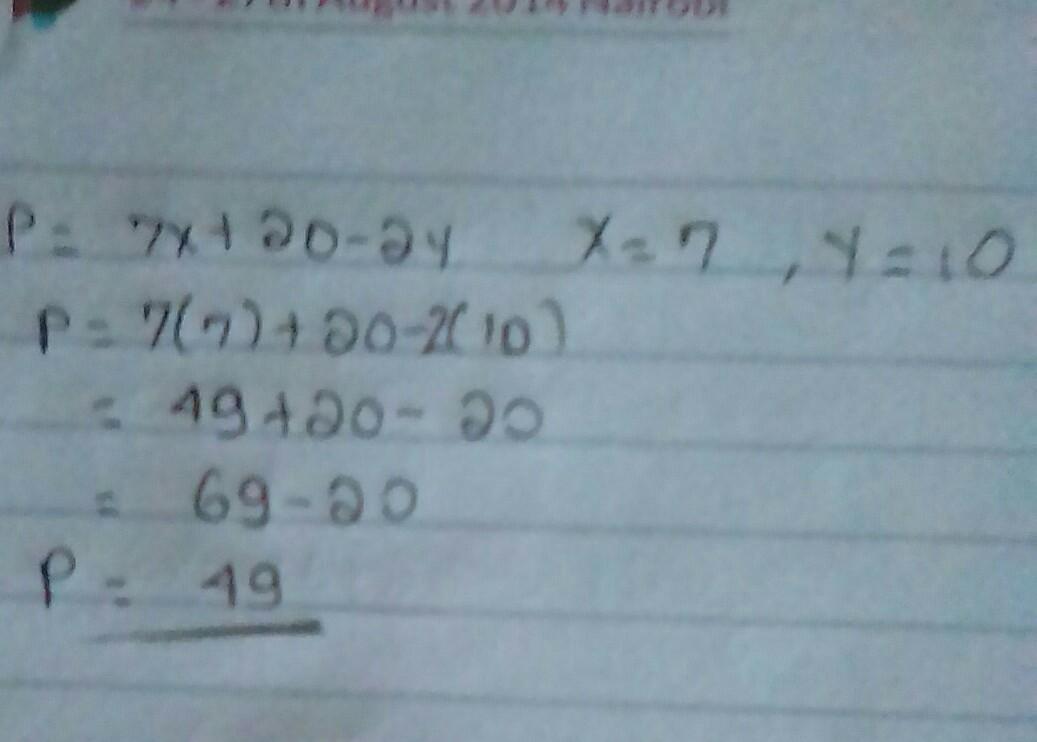 August 2014 Nairobi
P = 7x + 20 - 2y x = 7 , y = 10
P = 7(7) + 20 - 2(10)
= 49 + 20 - 20
= 69 - 20
P = 49